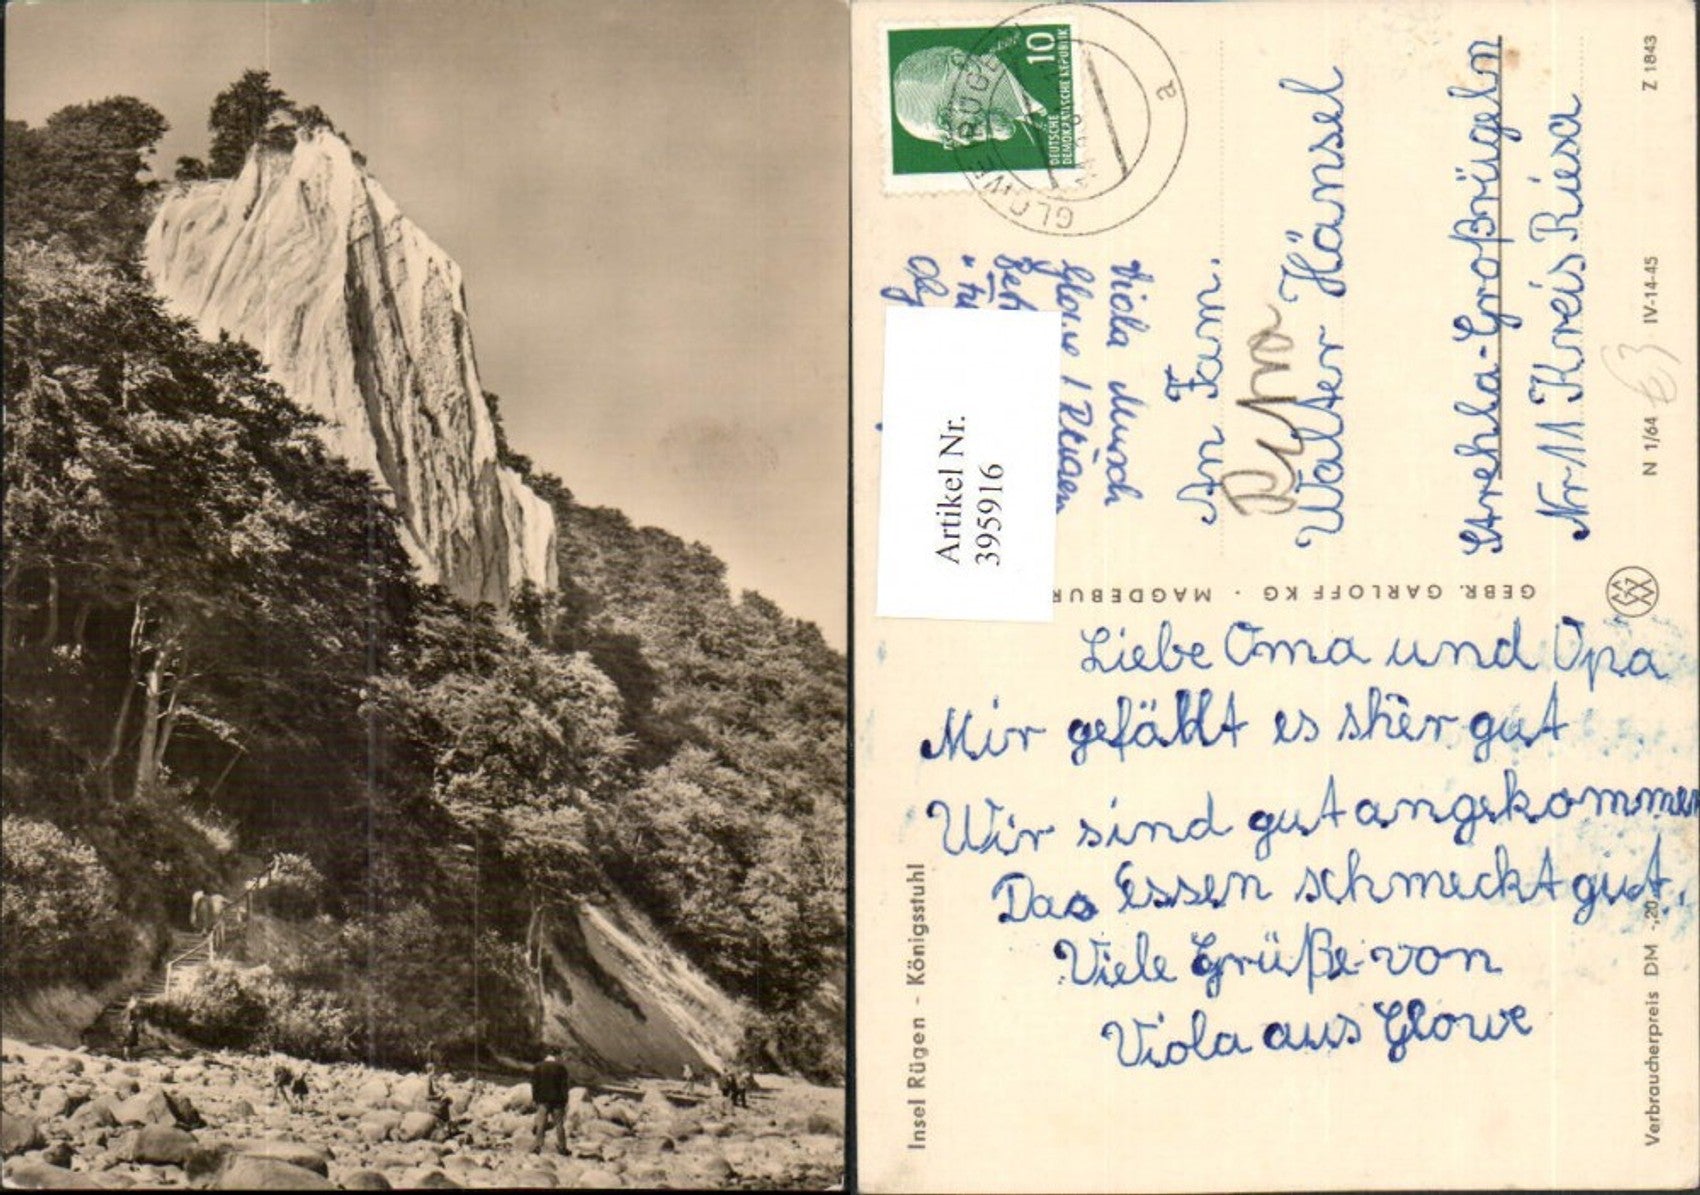 10
DEUTSCHE
DEMOKRATISCHE REPUBLIK
GLOWE
RÜGEN
a
Viola Munch
Glowe / Rügen
Artikel Nr.
395916
An Fam.
Walter Hänsel
Strehla-Großrügeln
Nr 11 Kreis Riesa
Z 1843
IV-14-45
N 1/64
GEBR. GARLOFF KG · MAGDEBUR
Liebe Oma und Opa
Mir gefällt es sehr gut
Wir sind gut angekommen
Das Essen schmeckt gut.
Viele Grüße von
Viola aus Glowe
Insel Rügen - Königsstuhl
Verbraucherpreis DM -,20